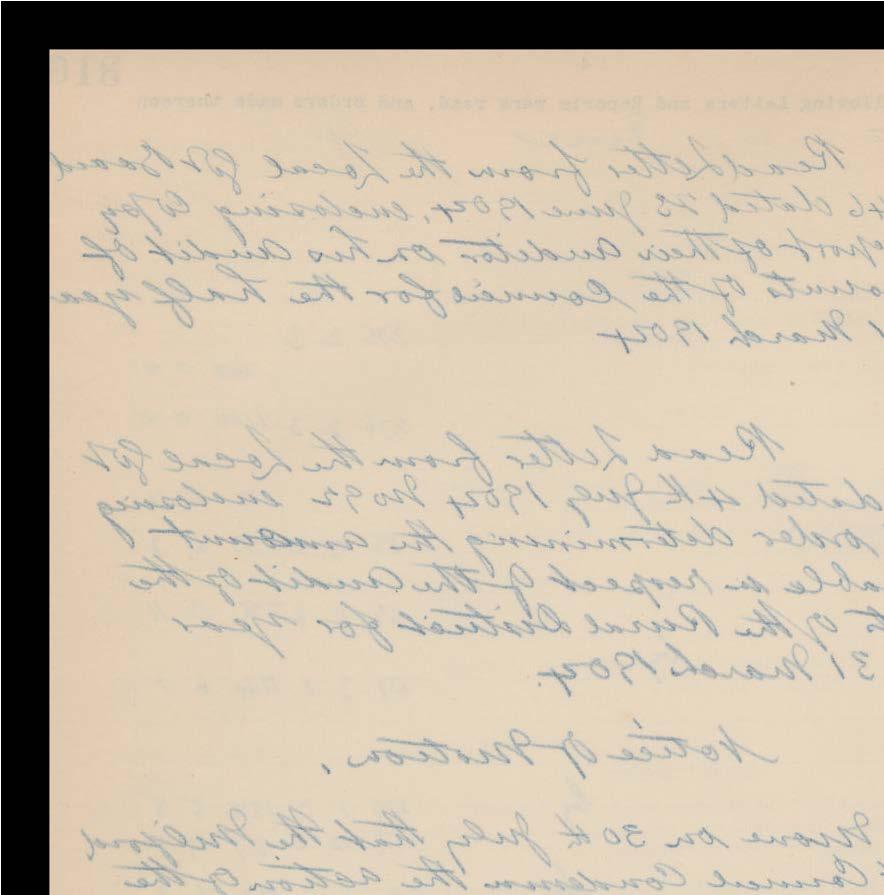 310
llowing Letters and Reports were read, and orders made thereon
Read Letter from the Local Govt Board
46 dated 23 June 1904, enclosing Copy
eport of their Auditor on his Audit of
ounts of the Council for the half yea
1 March 1904
Read Letter from the Local Govt
dated 4th July 1904 No 92 enclosing
order determining the amount
able in respect of the Audit of the
ts of the Rural District for year
31 March 1904.
Notice of Motion.
on 30th July that the Milford
Council Condemn the action of the